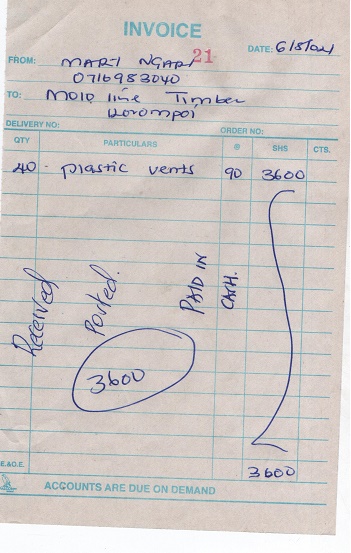 INVOICE
21
DATE:
FROM: MARY NGARI
0716983040
TO: Molo line Timber
DELIVERY NO: ORDER NO:
QTY PARTICULARS @ SHS CTS.
40 - plastic vents 90 3600
Received Posted. PAID IN CASH.
3600
3600
E.&O.E.
ACCOUNTS ARE DUE ON DEMAND